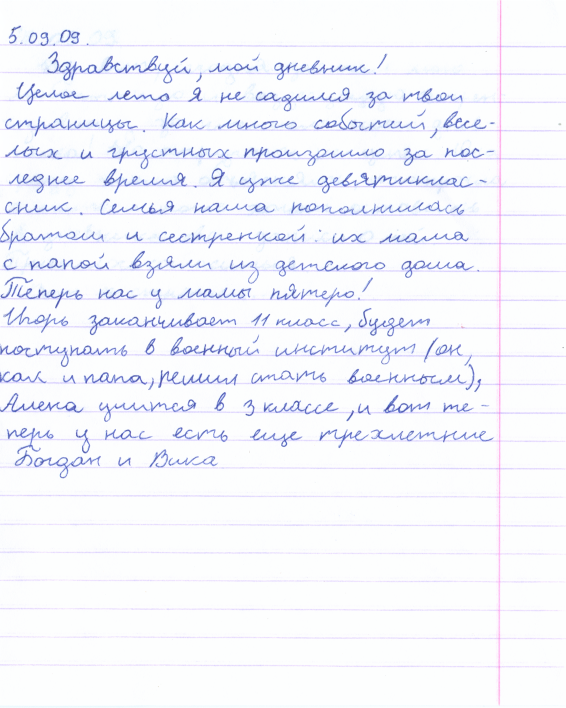 5.09.09.
Здравствуй, мой дневник!
Целое лето я не садился за твои
страницы. Как много событий, весе-
лых и грустных произошло за пос-
леднее время. Я уже девятиклас-
сник. Семья наша пополнилась
братом и сестренкой: их мама
с папой взяли из детского дома.
Теперь нас у мамы пятеро!
Игорь заканчивает 11 класс, будет
поступать в военный институт (он,
как и папа, решил стать военным),
Алена учится в 3 классе, и вот те-
перь у нас есть еще трехлетние
Богдан и Вика